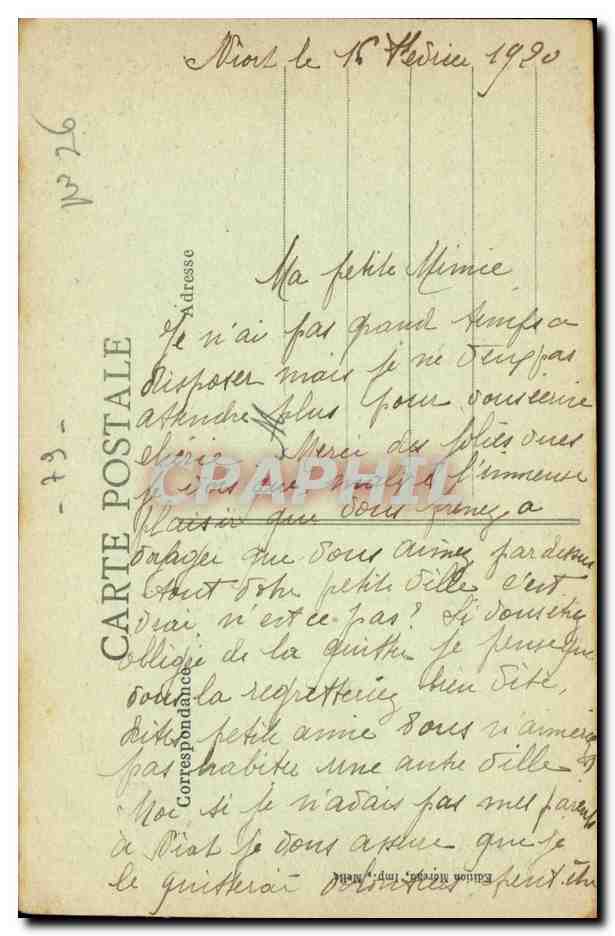 Niort le 16 Février 1920
N° 26
Ma petite Mimie
Je n'ai pas grand temps a
disposer mais je ne veux pas
attendre plus pour vous écrire
chérie Merci des jolies vues
je vois que malgré l'immense
plaisir que vous prenez a
voyager que vous aimez par dessus
tout votre petite ville c'est
vrai n'est ce pas? Si vous étiez
obligée de la quitter je pense que
vous la regretteriez bien vite,
dites petite amie vous n'aimeriez
pas habiter une autre ville
Moi si je n'avais pas mes parents
à Niort je vous assure que je
le quitterai volontiers peut être
CARTE POSTALE
Adresse
Correspondance
- 79 -
Edition Moreau, Imp., Melle
CPAPHIL